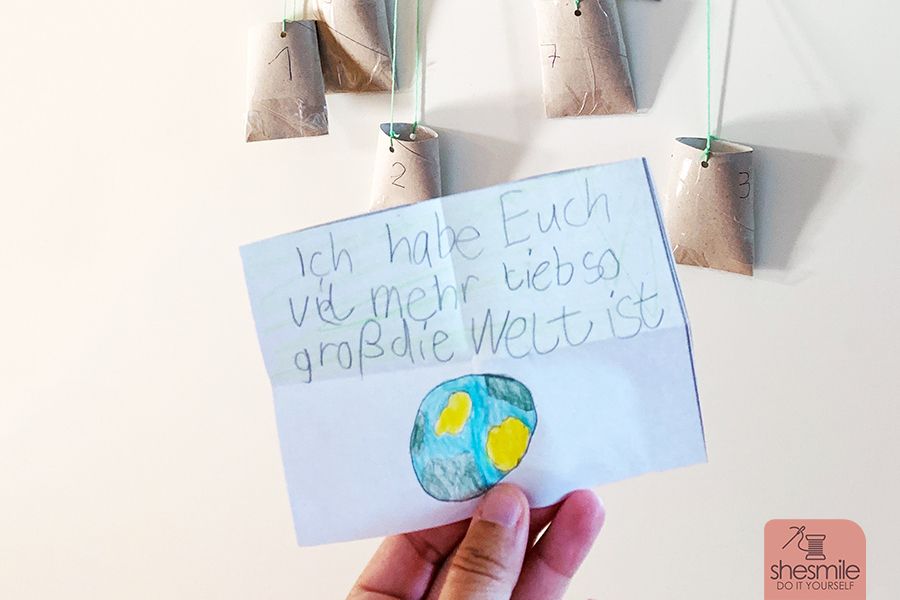 1
7
2
3
Ich habe Euch
viel mehr lieb so
groß die Welt ist
shesmile
DO IT YOURSELF